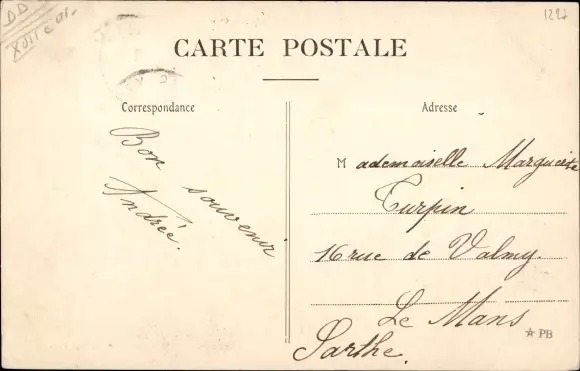 1227
CARTE POSTALE
Correspondance
Adresse
Bon souvenir
Andrée.
Mademoiselle Marguerite
Turpin
16 rue de Valmy.
Le Mans
Sarthe.
PB